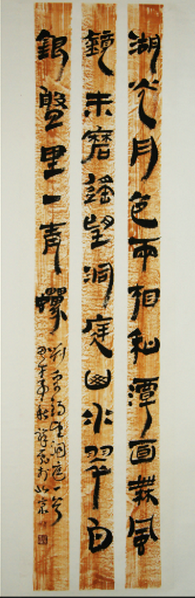 湖光月色兩相和潭面無風
鏡未磨遙望洞庭山水翠白
銀盤里一青螺
劉禹錫望洞庭一首